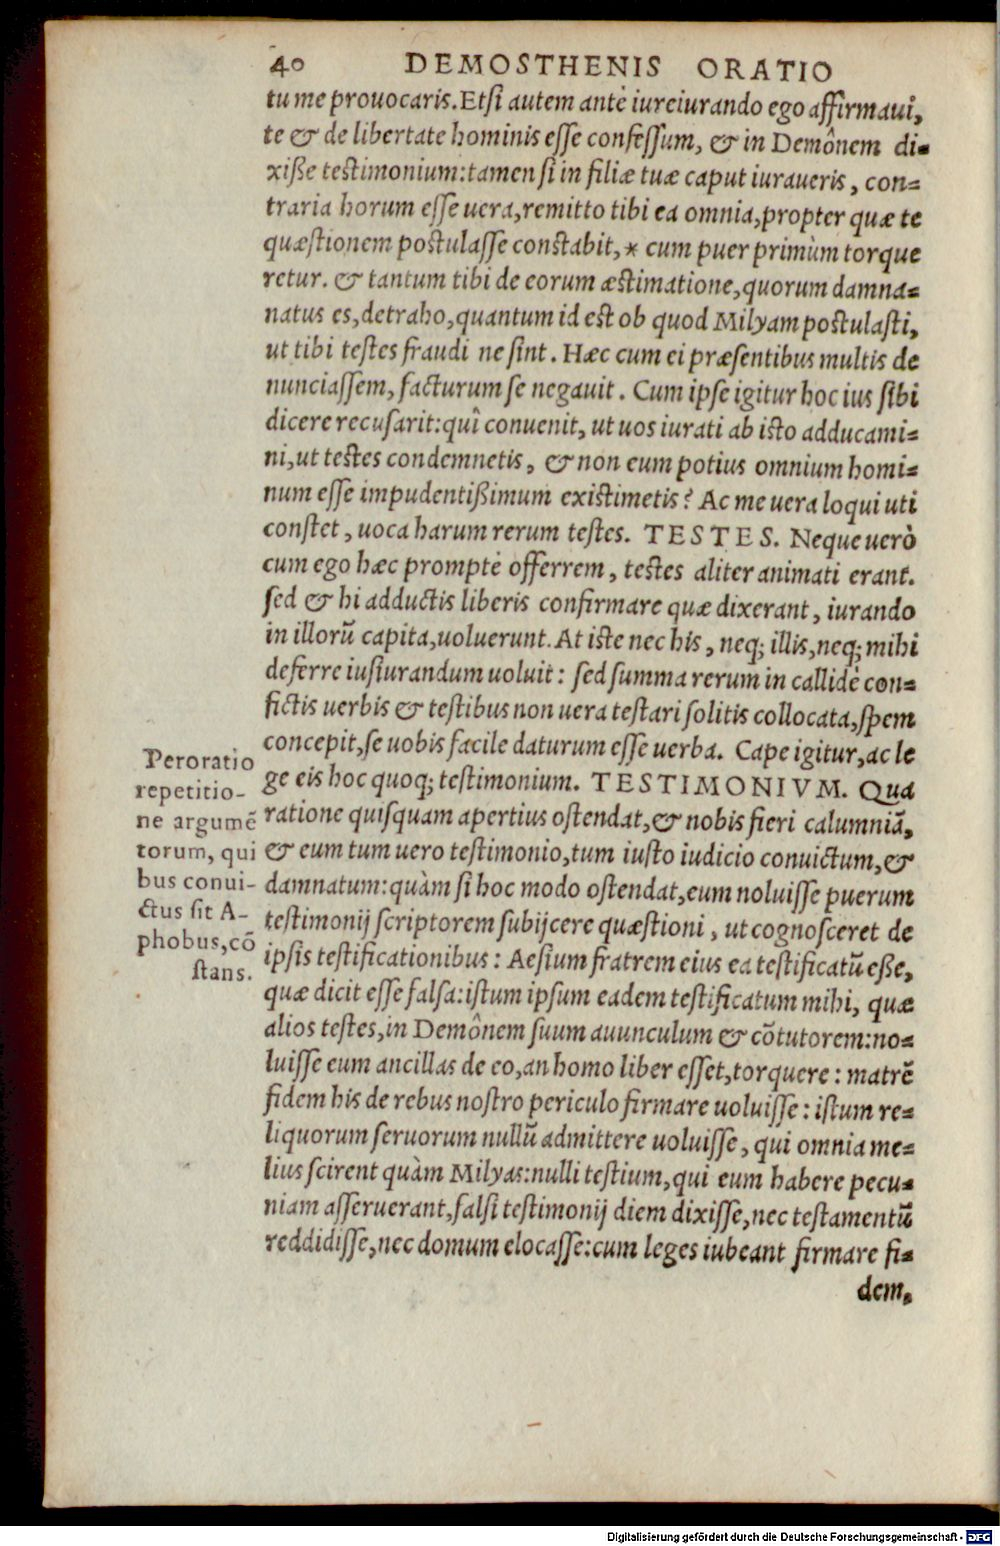 40 DEMOSTHENIS ORATIO
tu me prouocaris. Etsi autem antè iureiurando ego affirmaui,
te & de libertate hominis esse confessum, & in Demônem di-
xiße testimonium: tamen si in filiæ tuæ caput iuraueris, con-
traria horum esse uera, remitto tibi ea omnia, propter quæ te
quæstionem postulasse constabit, * cum puer primùm torque
retur. & tantum tibi de eorum æstimatione, quorum damna-
natus es, detraho, quantum id est ob quod Milyam postulasti,
ut tibi testes fraudi ne sint. Hæc cum ei præsentibus multis de
nunciassem, facturum se negauit. Cum ipse igitur hoc ius sibi
dicere recusarit: quî conuenit, ut uos iurati ab isto adducami-
ni, ut testes condemnetis, & non eum potius omnium homi-
num esse impudentißimum existimetis? Ac me uera loqui uti
constet, uoca harum rerum testes. TESTES. Neque uerò
cum ego hæc promptè offerrem, testes aliter animati erant.
sed & hi adductis liberis confirmare quæ dixerant, iurando
in illorũ capita, uoluerunt. At iste nec his, neq; illis, neq; mihi
deferre iusiurandum uoluit: sed summa rerum in callidè con-
fictis uerbis & testibus non uera testari solitis collocata, spem
concepit, se uobis facile daturum esse uerba. Cape igitur, ac le
ge eis hoc quoq; testimonium. TESTIMONIVM. Qua
ratione quisquam apertius ostendat, & nobis fieri calumniã,
& eum tum uero testimonio, tum iusto iudicio conuictum, &
damnatum: quàm si hoc modo ostendat, eum noluisse puerum
testimonij scriptorem subijcere quæstioni, ut cognosceret de
ipsis testificationibus: Aesium fratrem eius ea testificatũ eße,
quæ dicit esse falsa: istum ipsum eadem testificatum mihi, quæ
alios testes, in Demônem suum auunculum & cõtutorem: no-
luisse eum ancillas de eo, an homo liber esset, torquere: matrẽ
fidem his de rebus nostro periculo firmare uoluisse: istum re-
liquorum seruorum nullũ admittere uoluisse, qui omnia me-
lius scirent quàm Milyas: nulli testium, qui eum habere pecu-
niam asseruerant, falsi testimonij diem dixisse, nec testamentũ
reddidisse, nec domum elocasse: cum leges iubeant firmare fi-
dem,
Peroratio
repetitio-
ne argumẽ
torum, qui
bus conui-
ctus sit A-
phobus, cõ
stans.
Digitalisierung gefördert durch die Deutsche Forschungsgemeinschaft - DFG